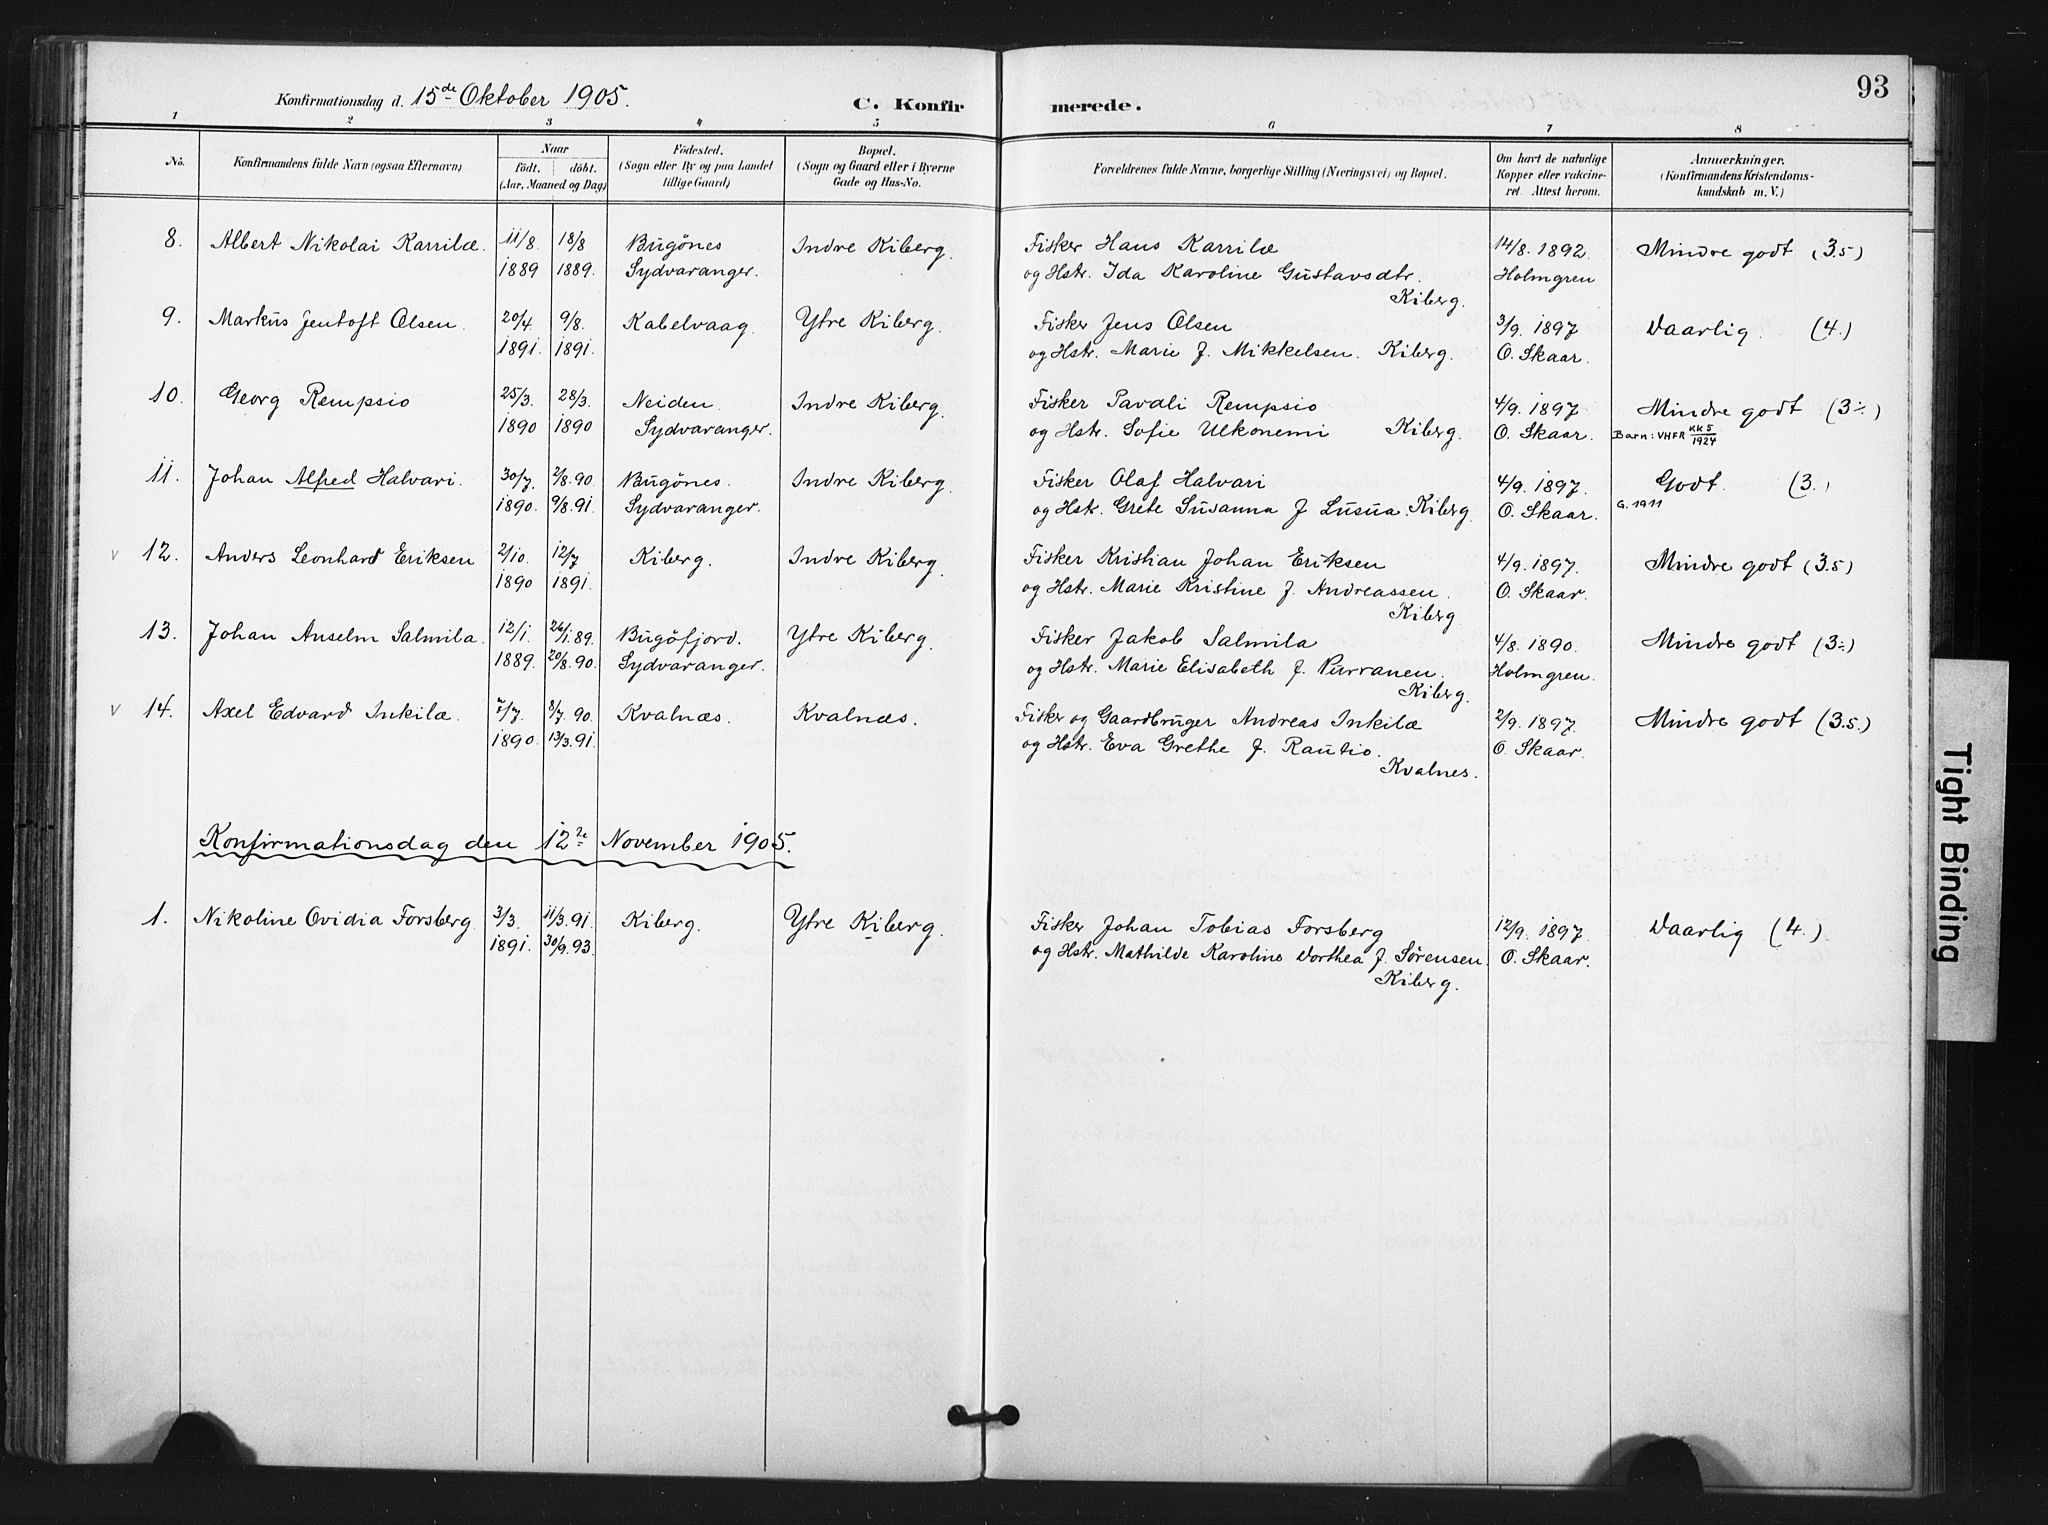 Konfirmationsdag d. 15de Oktober 1905. C. Konfirmerede. 93
1 2 3 4 5 6 7 8
No. Konfirmandens fulde Navn (ogsaa Efternavn) Naar født. døbt. (Aar, Maaned og Dag) Fødested. (Sogn eller By og paa Landet tillige Gaard) Bopæl. (Sogn og Gaard eller i Byerne Gade og Hus-No. Forældrenes fulde Navne, borgerlige Stilling (Næringsvei) og Bopæl. Om havt de naturlige Kopper eller vakcineret. Attest herom. Anmærkninger. (Konfirmandens Kristendomskundskab m. V.)
8. Albert Nikolai Karrilæ. 11/8. 18/8 Bugönes Indre Kiberg. Fisker Hans Karrilæ 14/8. 1892. Mindre godt (3.5)
1889 1889. Sydvaranger. og Hstr. Ida Karoline Gustavsdtr. Holmgren
Kiberg.
9. Markus Jentoft Olsen. 20/4. 9/8. Kabelvaag. Ytre Kiberg. Fisker Jens Olsen 3/9. 1897 Daarlig. (4.)
1891. 1891. og Hstr. Marie J. Mikkelsen. Kiberg. O. Skaar.
10. Georg Rempsio 25/3. 28/3. Neiden. Indre Kiberg. Fisker Pavali Rempsio 4/9. 1897. Mindre godt (3÷)
1890 1890 Sydvaranger. og Hstr. Sofie Ulkonemi Kiberg. O. Skaar. Barn: VHFR KK5/1924
11. Johan Alfred Halvari. 30/7. 2/8.90. Bugönes. Indre Kiberg. Fisker Olaf Halvari 4/9. 1897. Godt. (3.)
1890. 9/8.91. Sydvaranger. og Hstr. Grete Susanna J Lusua. Kiberg. O. Skaar. G. 1911
v 12. Anders Leonhard Eriksen 2/10. 12/7 Kiberg. Indre Kiberg. Fisker Kristian Johan Eriksen 4/9. 1897. Mindre godt (3.5)
1890 1891. og Hstr. Marie Kristine J. Andreassen. O. Skaar.
Kiberg
13. Johan Anselm Salmila. 12/1. 26/1.89. Bugöfjord. Ytre Kiberg. Fisker Jakob Salmila 4/8. 1890. Mindre godt (3÷)
1889. 20/8.90. Sydvaranger. og Hstr. Marie Elisabeth J. Purranen. Holmgren.
Kiberg.
v 14. Axel Edvard Inkilæ. 7/7. 8/7.90. Kvalnæs. Kvalnæs. Fisker og Gaardbruger Andreas Inkilæ 2/9. 1897. Mindre godt (3.5.)
1890. 13/3.91. og Hstr. Eva Grethe J. Rautio. O. Skaar.
Kvalnes.
Konfirmationsdag den 12te November 1905.
1. Nikoline Ovidia Forsberg 3/3. 11/3.91. Kiberg. Ytre Kiberg. Fisker Johan Tobias Forsberg 12/9. 1897. Daarlig (4.)
1891. 30/9.93. og Hstr. Mathilde Karoline Dorthea J. Sørensen. O. Skaar.
Kiberg.
Tight Binding